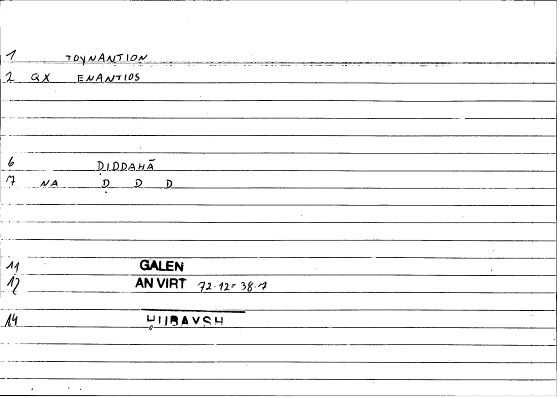 1 TOYNANTION
2 QX ENANTIOS
6 ḌIDDAHĀ
7 NA Ḍ D D
11 GALEN
12 AN VIRT 72.12-38.1
14